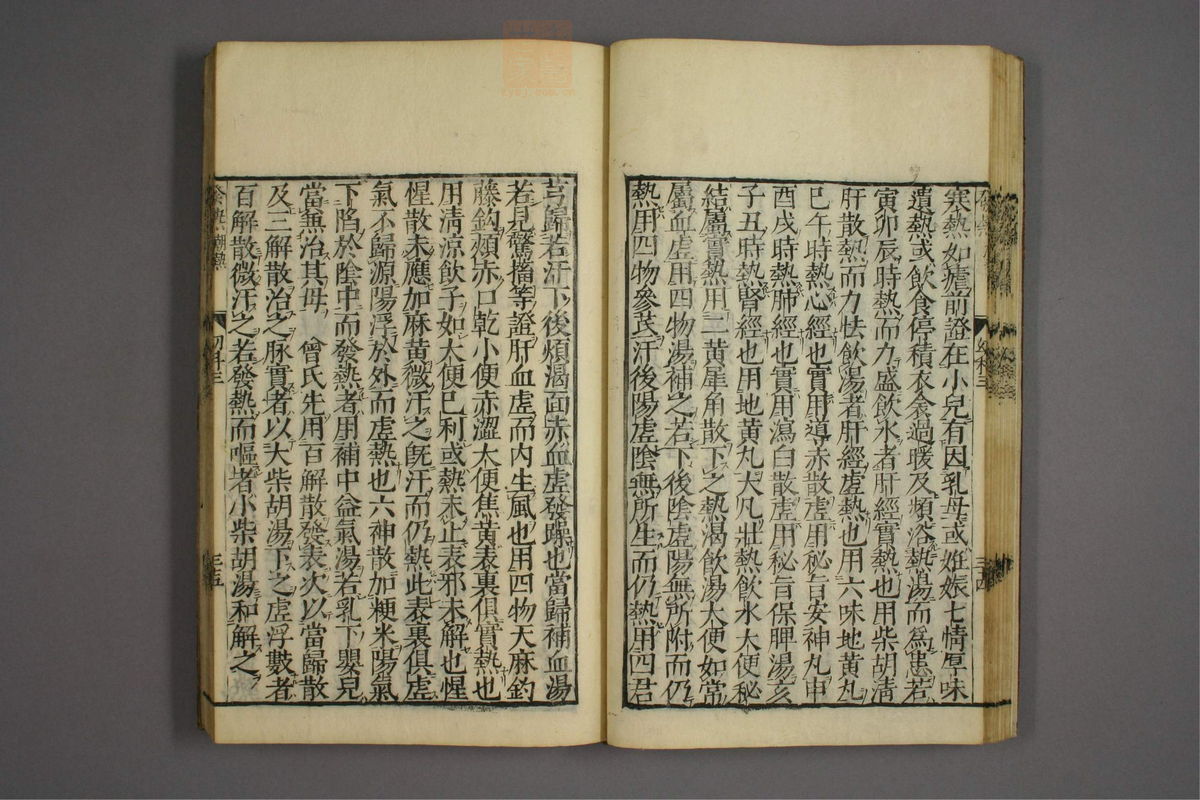 寒熱如瘧前證在小兒有因乳母或姙娠七情厚味
遺熱或飲食停積衣衾過暖及頻浴熱湯而爲患若
寅卯辰時熱而力盛飲水者肝經實熱也用柴胡清
肝散熱而力怯飲湯者肝經虚熱也用六味地黄丸
巳午時熱心經也實用導赤散虚用秘旨安神丸申
酉戌時熱肺經也實用瀉白散虚用秘旨保脾湯亥
子丑時熱腎經也用地黄丸大凡壯熱飲水大便秘
結屬實熱用三黄犀角散下之熱渴飲湯大便如常
屬血虚用四物湯補之若下後陰虚陽無所附而仍
熱用四物參芪汗後陽虚陰無所生而仍熱用四君
芎歸若汗下後煩渴面赤血虚發躁也當歸補血湯
若見驚搐等證肝血虚而内生風也用四物天麻釣
藤鈎頰赤口乾小便赤澀大便焦黄表裏俱實熱也
用清凉飲子如大便已利或熱未止表邪未解也惺
惺散未應加麻黄微汗之既汗而仍熱此表裏俱虚
氣不歸源陽浮於外而虚熱也六神散加粳米陽氣
下陷於陰中而發熱者用補中益氣湯若乳下嬰兒
當兼治其母 曾氏先用百解散發表次以當歸散
及三解散治之脉實者以大柴胡湯下之虚浮數者
百解散微汗之若發熱而嘔者小柴胡湯和解之
幼科三
三十四
潮熱
幼科三
三十五